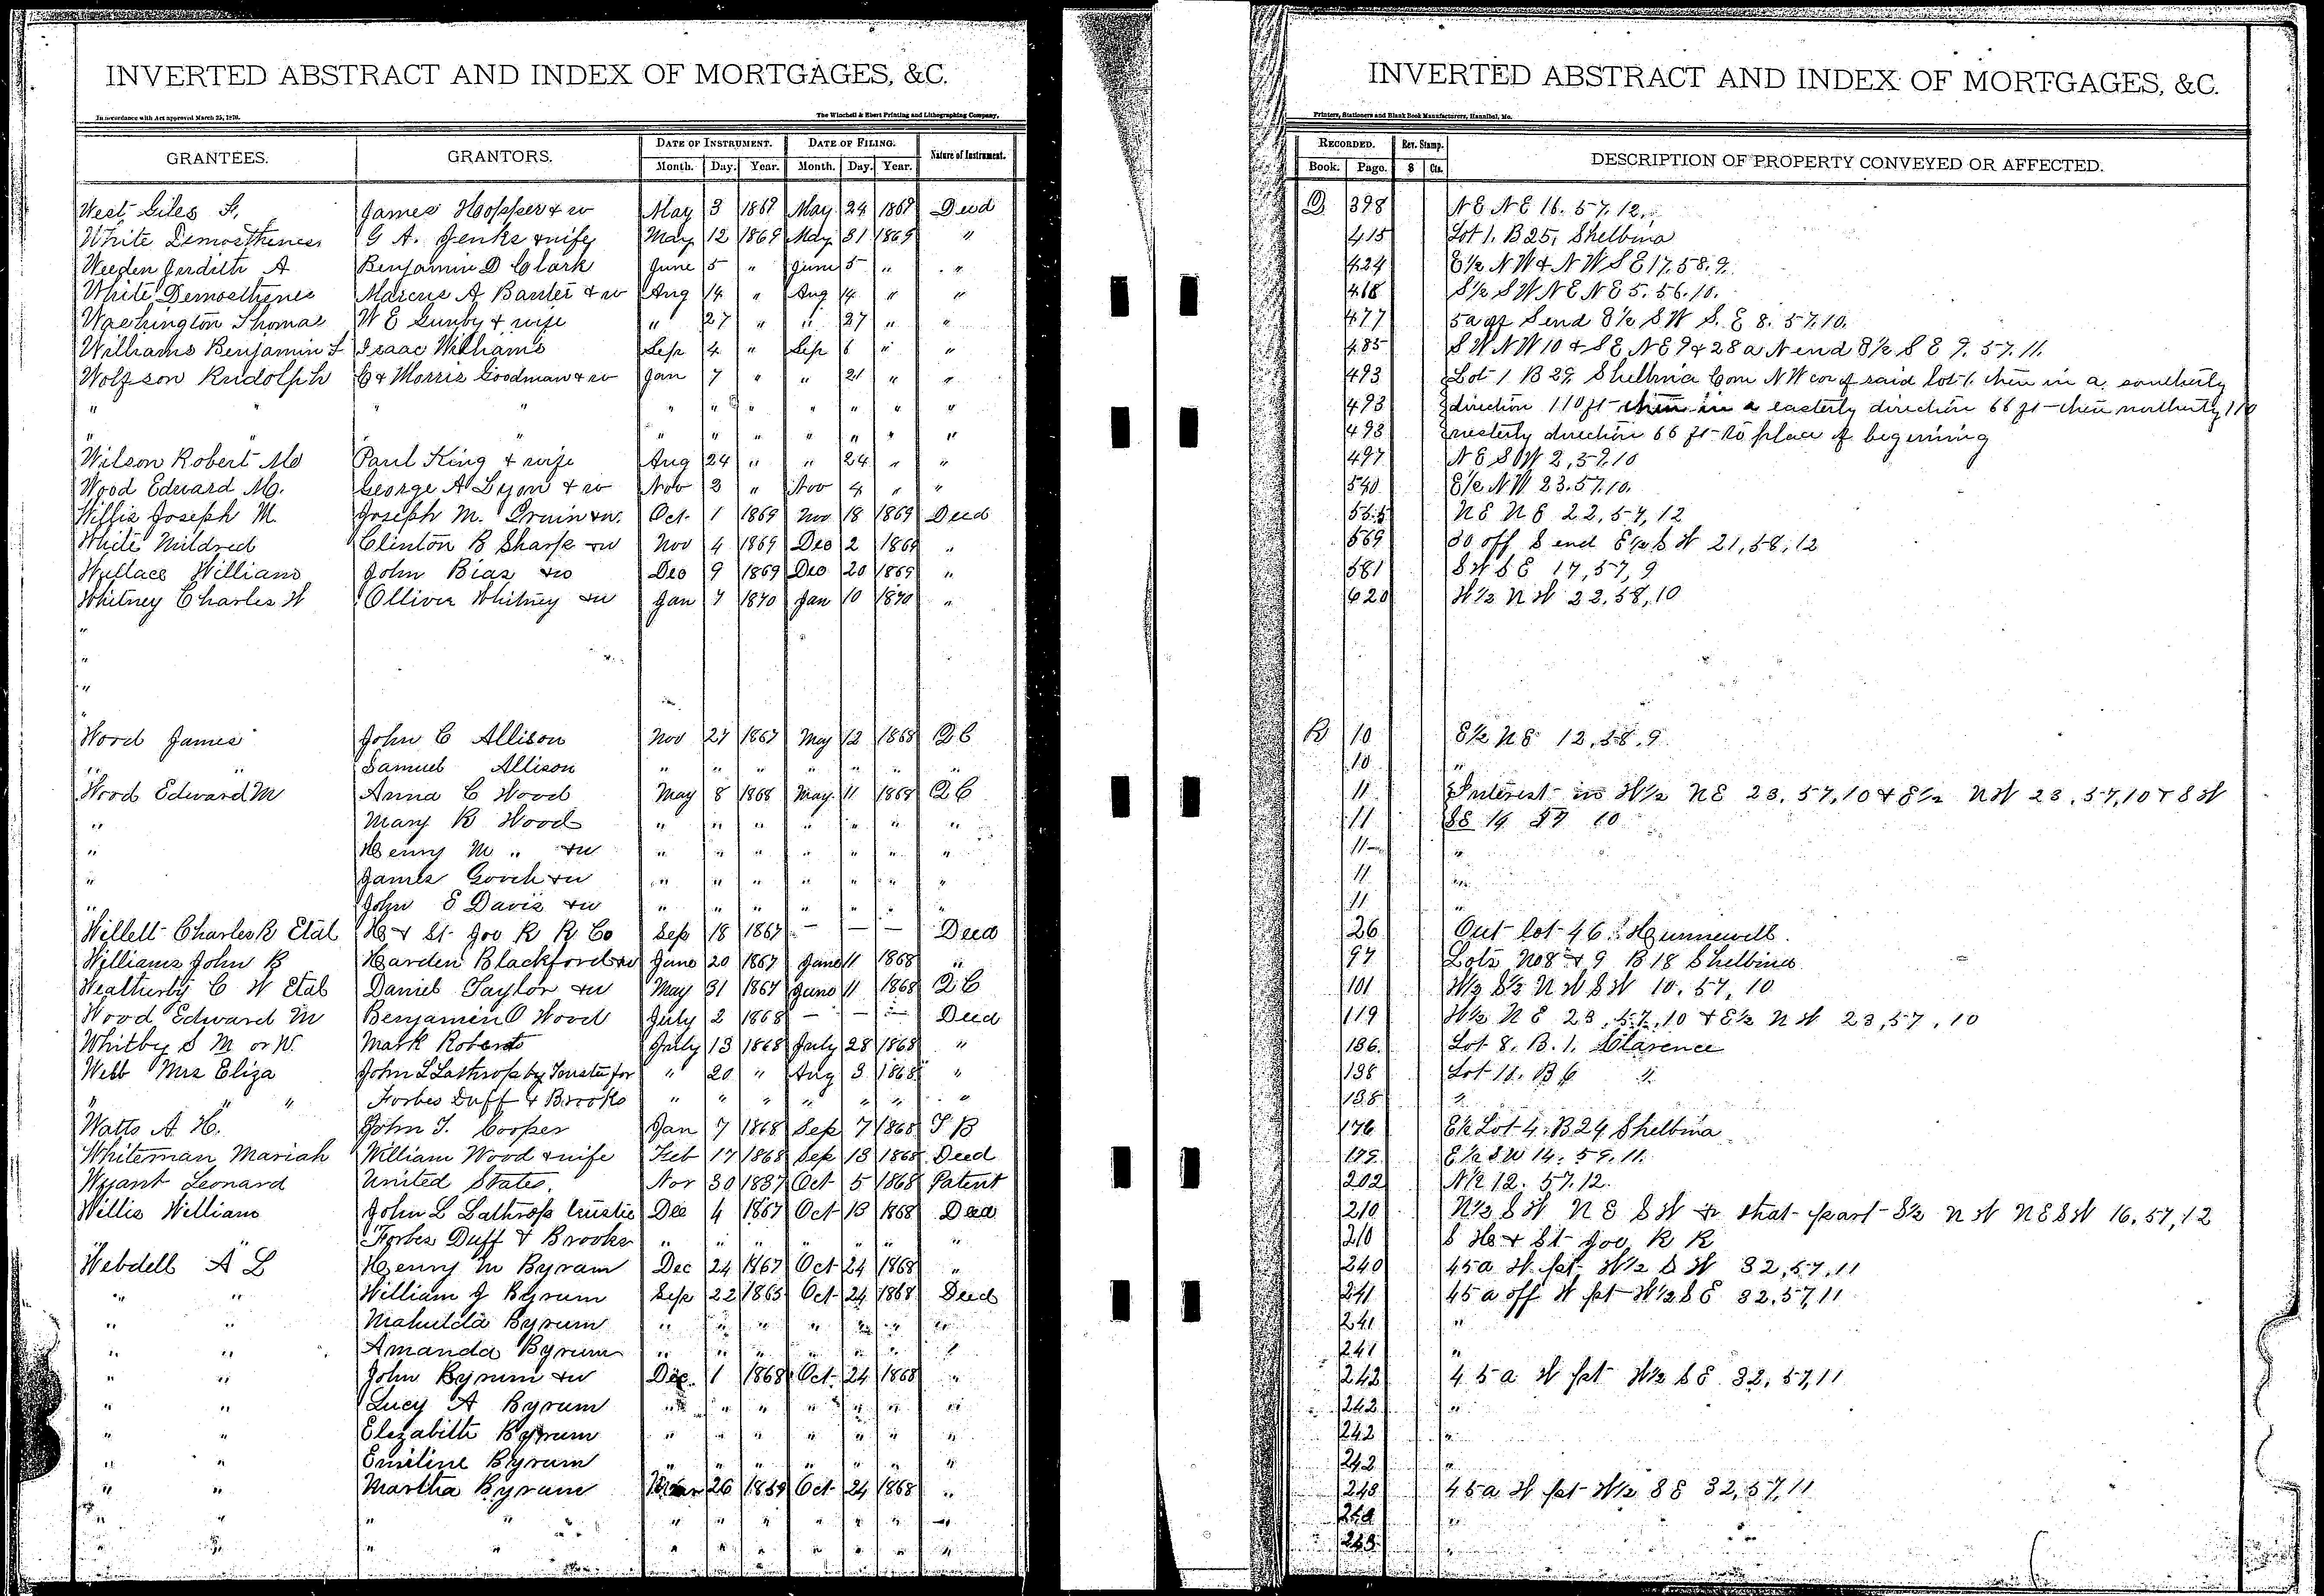 INVERTED ABSTRACT AND INDEX OF MORTGAGES, &C.
In accordance with Act approved March 25, 1870. The Winchell & Ebert Printing and Lithographing Company,
GRANTEES. GRANTORS. DATE OF INSTRUMENT. DATE OF FILING. Nature of Instrument.
Month. Day. Year. Month. Day. Year.
West Giles James Hopper & w May 3 1869 May 24 1869 Deed
White Demosthenes G A. Jenks & wife May 12 1869 May 31 1869 "
Weeden Jerdith A Benjamin D Clark June 5 " June 5 " "
White Demosthenes Marcus A & w Aug 14 " Aug 14 " "
Washington Thomas W E Gunby & wife " 27 " " 27 " "
Williams Benjamin F Isaac Williams Sep 4 " Sep 6 " "
Wolfson Rudolph C & Morris Goodman & w Jan 7 " " 21 " "
" " " " " " " " " " "
" " " " " " " " " "
Wilson Robert Mc Paul King & wife Aug 24 " " 24 " "
Wood Edward M. George A Lyon & w Nov 3 " Nov 4 " "
Willis Joseph M. Joseph M. Drain & w. Oct. 1 1869 Nov 18 1869 Deed
White Mildred Clinton B Sharp & w Nov 4 1869 Dec 2 1869 "
Wallace William John Bias & w Dec 9 1869 Dec 20 1869 "
Whitney Charles W Olliver Whitney & w Jan 7 1870 Jan 10 1870 "
"
"
"
Wood James John C Allison Nov 27 1867 May 12 1868 QC
" " Samuel Allison " " " " " " "
Wood Edward M Anna C Wood May 8 1868 May 11 1868 QC
" Mary B Wood " " " " " " "
" Henry M " & w " " " " " " "
" James Gooch & w " " " " " " "
" John E Davis & w " " " " " " "
Willett Charles R Etal H & St Joe R R Co Sep 18 1867 — — — Deed
Williams John B Harden Blackford & w June 20 1867 June 11 1868 "
Weatherby C W Etal Daniel Taylor & w May 31 1867 June 11 1868 QC
Wood Edward M Benjamin O Wood July 2 1868 — — — Deed
Whitby S M or W. Mark Roberts July 13 1868 July 28 1868 "
Webb Mrs Eliza John L Lathrop by Trustee for " 20 " Aug 3 1868 "
" " " Forbes Duff & Brooks " " " " " " "
Watts A H. John T. Cooper Jan 7 1868 Sep 7 1868
Whiteman Mariah William Wood & wife Feb 17 1868 Sep 13 1868 Deed
Wyant Leonard United States. Nov 30 1837 Oct 5 1868 Patent
Willis William John L Lathrop trustee Dec 4 1867 Oct 13 1868 Deed
" " Forbes Duff & Brooks " " " " " " "
Webdell A L Henry M Byram Dec 24 1867 Oct 24 1868 "
" " William J Byrum Sep 22 1865 Oct 24 1868 Deed
" " Mahulda Byrum " " " " " " "
" " Amanda Byrum " " " " " " "
" " John Byrum & w Dec. 1 1868 Oct 24 1868 "
" " Lucy A Byrum " " " " " " "
" " Elezabith Byrum " " " " " " "
" " Emiline Byrum " " " " " " "
" " Martha Byrum 26 Oct 24 1868 "
" " " " " " " " " " "
" " " " " " " " " " "
INVERTED ABSTRACT AND INDEX OF MORTGAGES, &C.
Printers, Stationers and Blank Book Manufacturers, Hannibal, Mo.
RECORDED. Rev. Stamp. DESCRIPTION OF PROPERTY CONVEYED OR AFFECTED.
Book. Page. $ Cts.
Q 398 NE NE 16. 57. 12.
415 Lot 1. B 25, Shelbina
424 E½ NW & NW SE 17. 58. 9.
468 S½ SW NE NE 5. 56. 10.
477 5a of S end E½ SW S. E 8. 57. 10.
485 SW NW 10 & SE NE 9 & 28 a N end E½ SE 9. 57. 11.
493 Lot 1 B 29, Shelbina Com NW cor of said lot 1. then in a southerly
493 direction 110 ft then in a easterly direction 66 ft then northerly 110
493 westerly direction 66 ft to place of beginning
497 NE SW 2, 57, 10
540 E½ NW 23. 57. 10.
555 NE NE 22, 57, 12
569 30 off S end E½ S W 21, 58, 12
581 SW SE 17, 57, 9
620 W½ NW 22, 58, 10
R 10 E½ NE 12, 58, 9
10 "
11 Interest in W½ NE 23, 57, 10 & E½ NW 23, 57, 10 & SW
11 SE 14 57 10
11 "
11 "
11 "
26 Out lot 46 Hunnewell.
97 Lots No 8 & 9 B 18 Shelbina
101 W½ S½ NW SW 10, 57, 10
119 W½ NE 23, 57, 10 & E½ NW 23, 57, 10
136. Lot 8. B. 1. Clarence
138 Lot 11. B 6 "
138 "
176 E½ Lot 4. B 24 Shelbina
179 E½ SW 14. 59. 11.
202 N½ 12. 57. 12.
210 N½ SW NE SW & that part S½ NW NE SW 16, 57, 12
210 S H & St Joe R R
240 45a W pt W½ SW 32, 57, 11
241 45 a off W pt W½ SE 32, 57, 11
241 "
241 "
242 45 a W pt W½ SE 32, 57, 11
242 "
242 "
242 "
243 45a W pt W½ SE 32, 57, 11
243 "
243 "